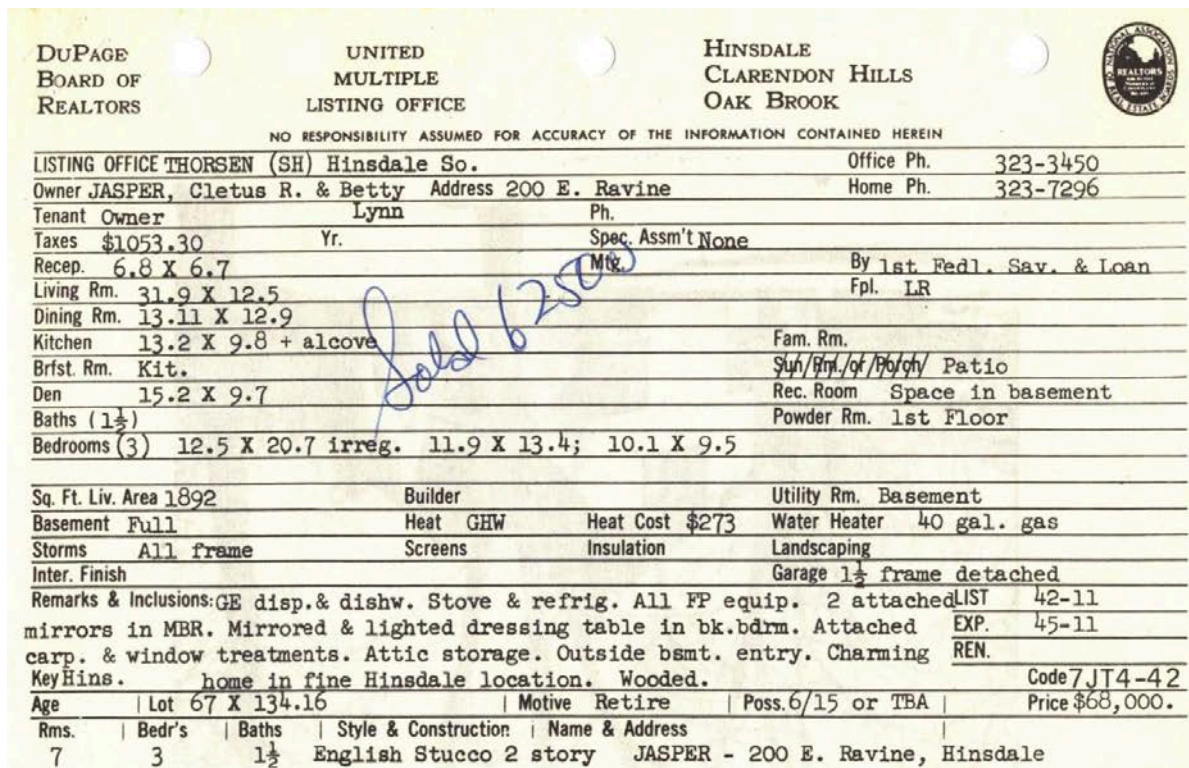 DuPage Board of Realtors
UNITED MULTIPLE LISTING OFFICE
Hinsdale Clarendon Hills Oak Brook
REALTORS
NO RESPONSIBILITY ASSUMED FOR ACCURACY OF THE INFORMATION CONTAINED HEREIN
LISTING OFFICE THORSEN (SH) Hinsdale So. Office Ph. 323-3450
Owner JASPER, Cletus R. & Betty Lynn Address 200 E. Ravine Home Ph. 323-7296
Tenant Owner Ph.
Taxes $1053.30 Yr. Spec. Assm't None
Recep. 6.8 X 6.7 Mtg. By 1st Fedl. Sav. & Loan
Living Rm. 31.9 X 12.5 Fpl. LR
Dining Rm. 13.11 X 12.9
Sold 62500
Kitchen 13.2 X 9.8 + alcove Fam. Rm.
Brfst. Rm. Kit. Sun/Rm./or/Porch/ Patio
Den 15.2 X 9.7 Rec. Room Space in basement
Baths (1½) Powder Rm. 1st Floor
Bedrooms (3) 12.5 X 20.7 irreg. 11.9 X 13.4; 10.1 X 9.5
Sq. Ft. Liv. Area 1892 Builder Utility Rm. Basement
Basement Full Heat GHW Heat Cost $273 Water Heater 40 gal. gas
Storms All frame Screens Insulation Landscaping
Inter. Finish Garage 1½ frame detached
Remarks & Inclusions: GE disp.& dishw. Stove & refrig. All FP equip. 2 attached LIST 42-11
mirrors in MBR. Mirrored & lighted dressing table in bk.bdrm. Attached EXP. 45-11
carp. & window treatments. Attic storage. Outside bsmt. entry. Charming REN.
Key Hins. home in fine Hinsdale location. Wooded. Code 7JT4-42
Age | Lot 67 X 134.16 | Motive Retire | Poss. 6/15 or TBA | Price $68,000.
Rms. | Bedr's | Baths | Style & Construction | Name & Address |
7 3 1½ English Stucco 2 story JASPER - 200 E. Ravine, Hinsdale